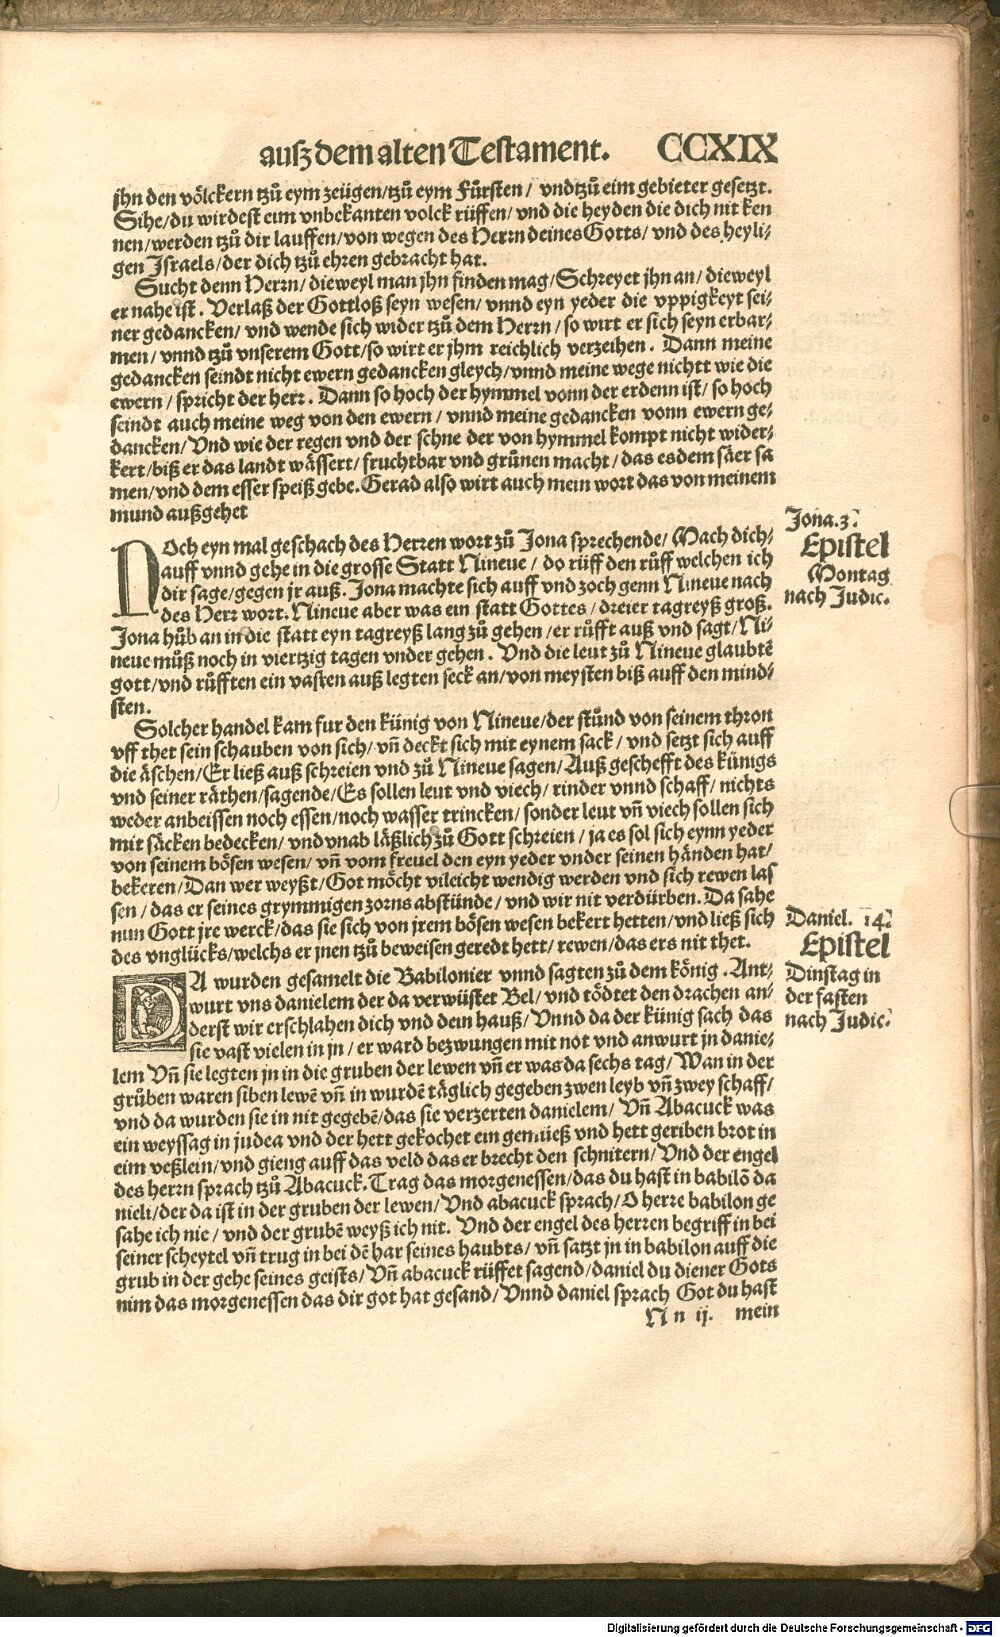 außdem alten Testament. CCXIX
jhn den völckern tzů eym zeügen/tzů eym Fürsten/ vndtzů eim gebieter gesetzt.
Sihe/du wirdest eim vnbekanten volck rüffen/ vnd die heyden die dich nit ken
nen/werden tzů dir lauffen/von wegen des Herrn deines Gotts/ vnd des heyli⸗
gen Israels/der dich tzů ehren gebracht hat.
Sucht denn Herrn/dieweyl man jhn finden mag/Schreyet jhn an/dieweyl
er nahe ist. Verlaß der Gottloß seyn wesen/ vnnd eyn yeder die vppigkeyt sei⸗
ner gedancken/ vnd wende sich wider tzů dem Herrn/so wirt er sich seyn erbar⸗
men/vnnd tzů vnserem Gott/so wirt er jhm reichlich verzeihen. Dann meine
gedancken seindt nicht ewern gedancken gleych/vnnd meine wege nichtt wie die
ewern/spricht der herr. Dann so hoch der hymmel vonn der erdenn ist/so hoch
seindt auch meine weg von den ewern/ vnnd meine gedancken vonn ewern ge⸗
dancken/Vnd wie der regen vnd der schne der von hymmel kompt nicht wider⸗
kert/biß er das landt wässert/fruchtbar vnd grůnen macht/das es dem säer sa
men/vnd dem esser speiß gebe. Gerad also wirt auch mein wort das von meinem
mund außgehet
Noch eyn mal geschach des Herren wort zů Jona sprechende/Mach dich⸗
auff vnnd gehe in die grosse Statt Nineue/do rüff den rüff welchen ich
dir sage/gegen jr auß. Jona machte sich auff vnd zoch genn Nineue nach
des Herr wort. Nineue aber was ein statt Gottes/dreier tagreyß groß.
Jona hůb an in die statt eyn tagreyß lang zů gehen/er růfft auß vnd sagt/Ni⸗
neue můß noch in viertzig tagen vnder gehen. Vnd die leut zů Nineue glaubtē
gott/vnd růfften ein vasten auß legten seck an/von meysten biß auff den mind⸗
sten.
Solcher handel kam fur den künig von Nineue/der stůnd von seinem thron
vff thet sein schauben von sich/vñ deckt sich mit eynem sack/vnd setzt sich auff
die äschen/Er ließ auß schreien vnd zů Nineue sagen/Auß geschefft des künigs
vnd seiner räthen/sagende/Es sollen leut vnd viech/rinder vnnd schaff/nichts
weder anbeissen noch essen/noch wasser trincken/sonder leut vñ viech sollen sich
mit säcken bedecken/vnd vnab läßlich zů Gott schreien/ja es sol sich eynn yeder
von seinem bösen wesen/vñ vom freuel den eyn yeder vnder seinen händen hat/
bekeren/Dan wer weyßt/Got möcht vileicht wendig werden vnd sich rewen las
sen/das er seines grymmigen zorns abstünde/vnd wir nit verdürben. Da sahe
nun Gott jre werck/das sie sich von jrem bösen wesen bekert hetten/vnd ließ sich
des vnglücks/welchs er jnen tzů beweisen geredt hett/rewen/das ers nit thet.
DA wurden gesamelt die Babilonier vnnd sagten zů dem könig. Ant⸗
wurt vns danielem der da verwüstet Bel/vnd tödtet den drachen an⸗
derst wir erschlahen dich vnd dein hauß/Vnnd da der künig sach das
sie vast vielen in jn/er ward bezwungen mit not vnd anwurt jn danie⸗
lem Vñ sie legten jn in die gruben der lewen vñ er was da sechs tag/Wan in der
grůben waren siben lewē vñ in wurdē täglich gegeben zwen leyb vñ zwey schaff/
vnd da wurden sie in nit gegebē/das sie verzerten danielem/Vñ Abacuck was
ein weyssag in judea vnd der hett gekochet ein gemüeß vnd hett geriben brot in
eim veßlein/vnd gieng auff das veld das er brecht den schnitern/Vnd der engel
des herrn sprach tzů Abacuck. Trag das morgenessen/das du hast in babilō da
nieli/der da ist in der gruben der lewen/Vnd abacuck sprach/O herre babilon ge
sahe ich nie/vnd der grubē weyß ich nit. Vnd der engel des herren begriff in bei
seiner scheytel vñ trug in bei dē har seines haubts/vñ satzt jn in babilon auff die
grub in der gehe seines geists/Vñ abacuck rüffet sagend/daniel du diener Gots
nim das morgenessen das dir got hat gesand/Vnnd daniel sprach Got du hast
N n ij. mein
Jona.3.
Epistel
Montag
nach Judic.
Daniel. 14.
Epistel
Dinstag in
der fasten
nach Judic.
Digitalisierung gefördert durch die Deutsche Forschungsgemeinschaft - DFG